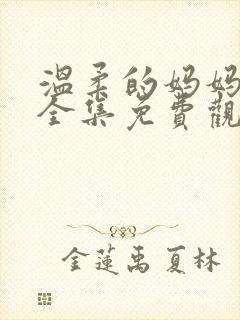 温柔的妈妈
全集免費觀
金蓮禹夏林